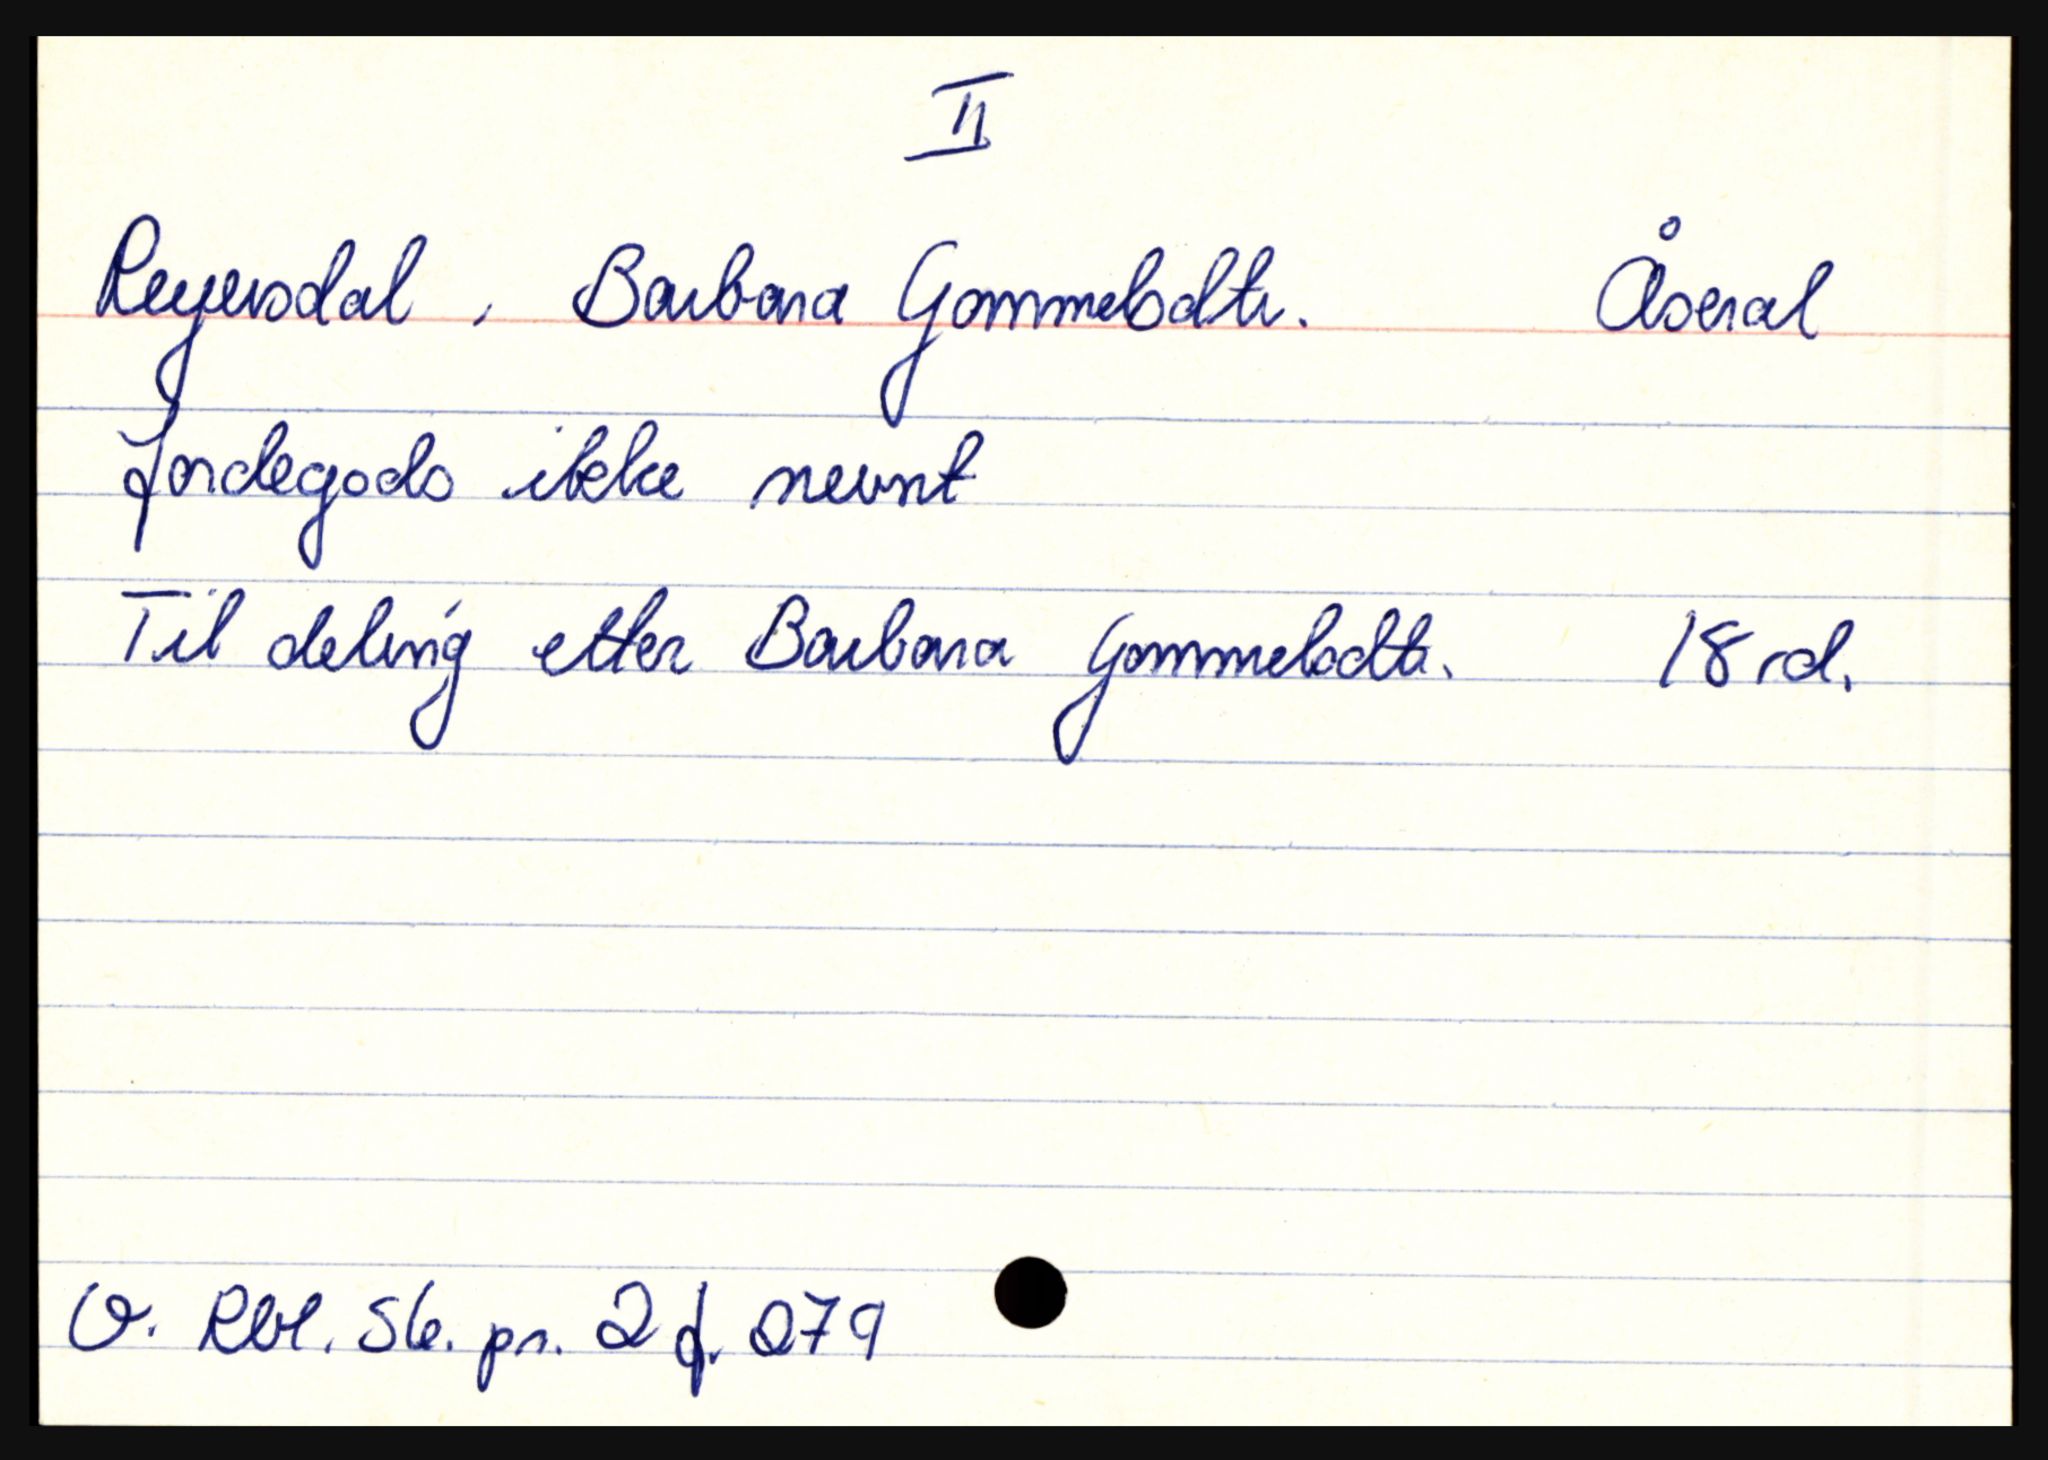 II
Reyersdal, Barbara Gommelsdtr. Åseral
Jordegods ikke nevnt
Til deling etter Barbara Gommelsdtr. 18 rd.
V. Rbl. Sk. pr. 2 f. 279